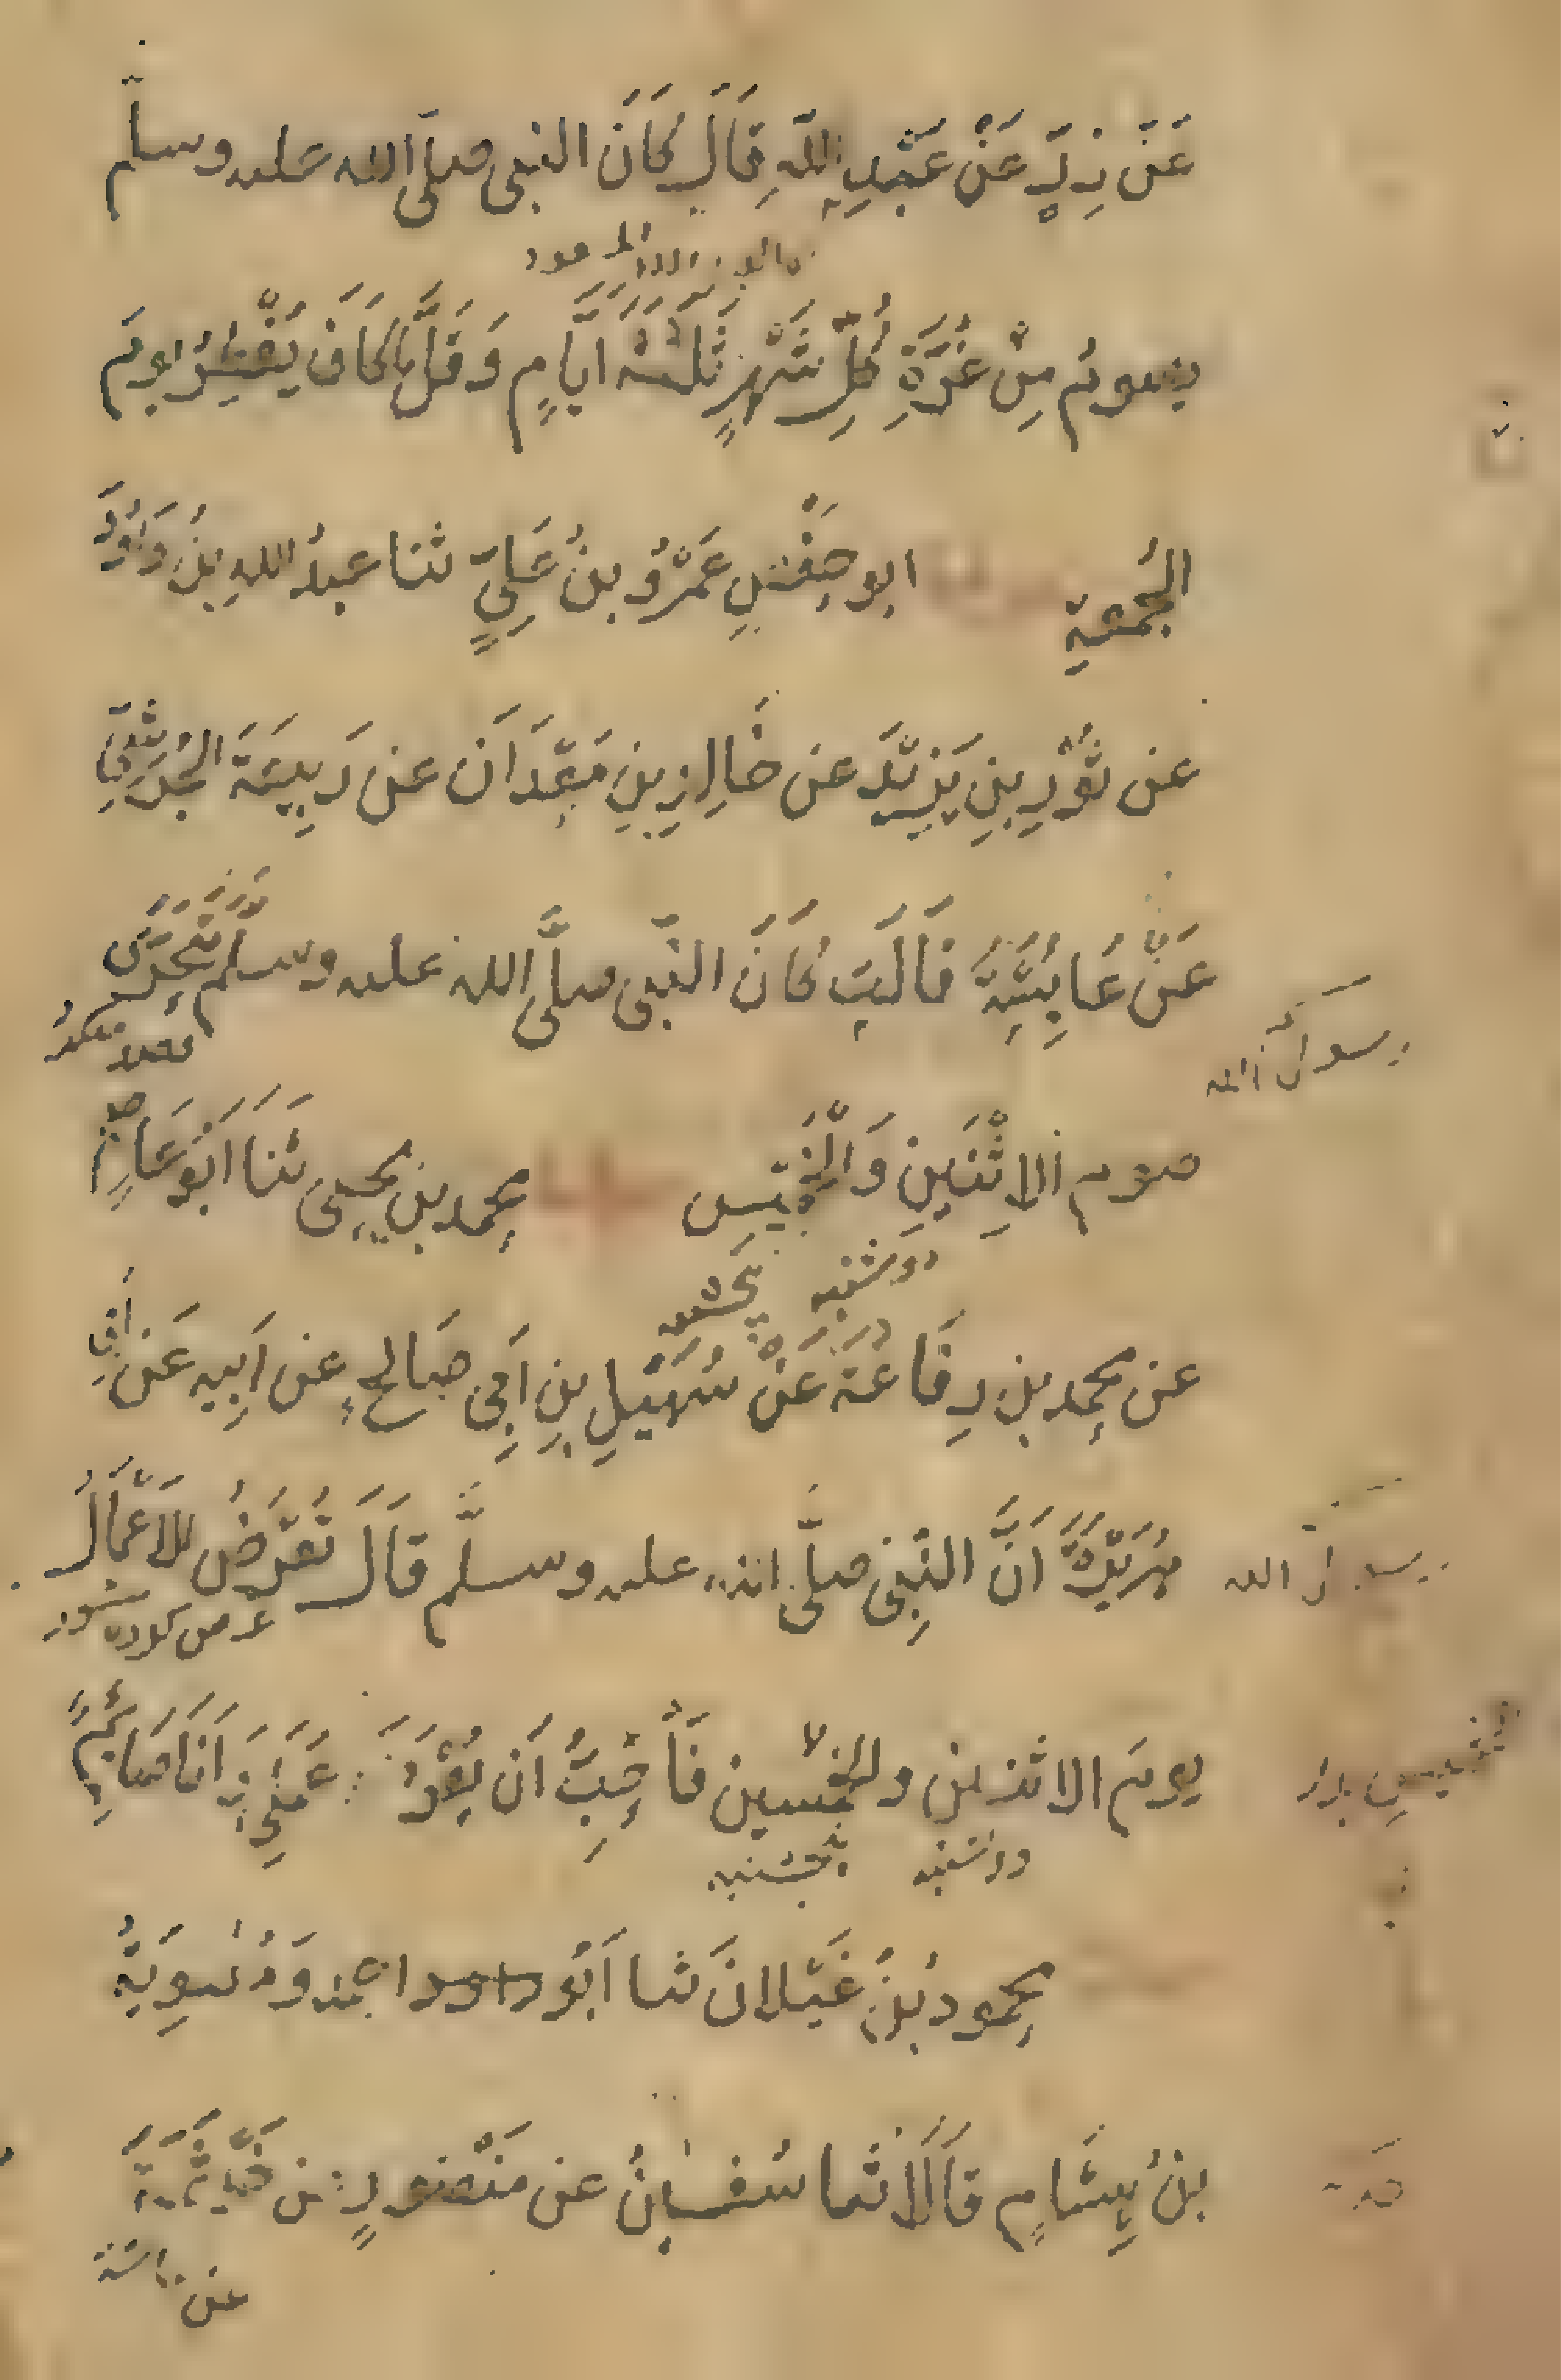 عَنْ زِرٍّ عَنْ عَبْدِ اللّٰهِ قَالَ كَانَ النبى صلّى الله عليه وسلّم
يصومُ مِنْ غُرَّةِ كُلِّ شَهْرٍ ثَلٰثَةَ اَيَّامٍ وَقَلَّمَا كَانَ يُفْطِرُ يومَ
الجُمُعَةِ ابو حَفْصٍ عَمْرُو بنُ عَلِىٍّ ثنا عبدُ اللهِ بنُ دَاوُدَ
عن ثَوْرِ بنِ يَزِيْدَ عن خَالِدِ بنِ مَعْدَانَ عن رَبِيعَةَ الجُرَشِىِّ
عَنْ عَائِشَةَ قَالَتْ كَانَ النَّبى صلَّى الله عليه وسلَّم يَتَحَرّٰى
رسولُ الله
صوم الاِثْنَينِ وَالْخَمِيسِ محمد بن يحيى ثنا اَبُو عَاصِمٍ
دوشنبه پنجشنبه
عن محمد بن رِفَاعَةَ عَنْ سُهَيْلِ بنِ اَبِى صَالحٍ عن اَبِيه عَنْ اَبِى
هُرَيْرَةَ اَنَّ النَّبِى صلَّى الله عليه وسلَّم قَالَ تُعْرَضُ الاَعْمَالُ
رسول الله
عرض كرده شود
يومَ الاثنين والخَمِيسِ فَاُحِبُّ اَن يُعْرَضَ عَمَلِى وَاَنَا صَائِمٌ
دوشنبه پنجشنبه
محمودُ بْنُ غَيْلانَ ثنا اَبُو احمد وَمُعٰوِيَةُ
بنُ هِشَامٍ قَالَا ثنا سُفيانُ عن مَنْصُورٍ عن خَيْثَمَةَ
عن عائشة